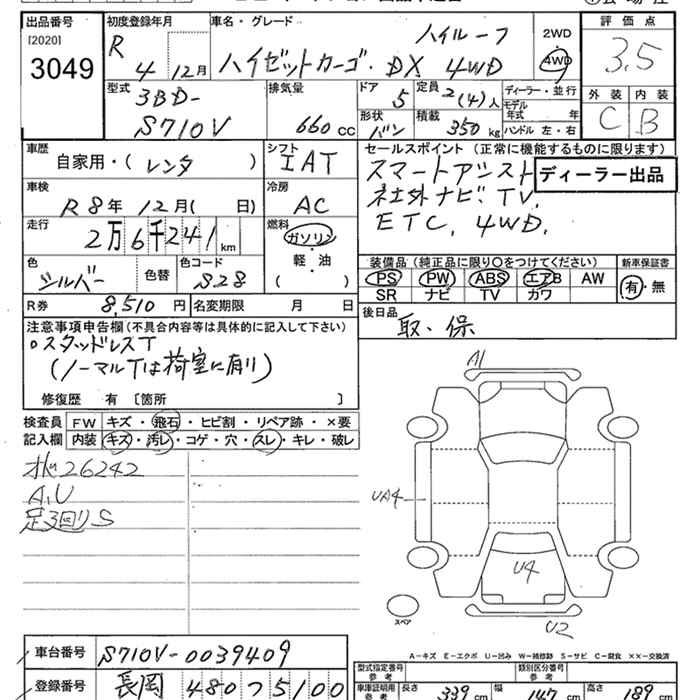 出品番号
[2020]
3049
初度登録年月
R
4 12月
車名・グレード
ハイルーフ
ハイゼットカーゴ DX 4WD
2WD
4WD
評価点
3.5
外装 内装
C B
型式
3BD-
S710V
排気量
660 cc
ドア
5
定員
2(4)人
形状
バン
積載
350 kg
ディーラー・並行
モデル年式 年
ハンドル 左・右
車歴
自家用・(レンタ )
シフト
IAT
セールスポイント (正常に機能するものに限ります)
スマートアシスト
社外ナビ.TV.
ETC. 4WD.
ディーラー出品
車検
R8年 12月( 日)
冷房
AC
走行
2万6千241km
燃料
ガソリン
軽・油
( )
色
シルバー
色替
色コード
S28
装備品 (純正品に限り○をつけてください)
PS PW ABS エアB AW
SR ナビ TV カワ
新車保証書
有・無
R券 8,510円
名変期限 月 日
後日品
取・保
注意事項申告欄(不具合内容等は具体的に記入して下さい)
○スタッドレスT
(ノーマルTは荷室に有り)
修復歴 有 〔箇所 〕
検査員
記入欄
FW キズ・飛石・ヒビ割・リペア跡・×要
内装 キズ・汚レ・コゲ・穴・スレ・キレ・破レ
26242
A,U
足3回りS
A1
UA4
U4
U2
スペア
A-キズ E-エクボ U-凹み W-補修跡 S-サビ C-腐食 ××-交換済
車台番号
S710V-0039409
登録番号
長岡 480 つ 5100
型式指定番号
参考
類別区分番号
参考
車庫証明用
参考
長さ 339 cm
幅 147 cm
高さ 189 cm